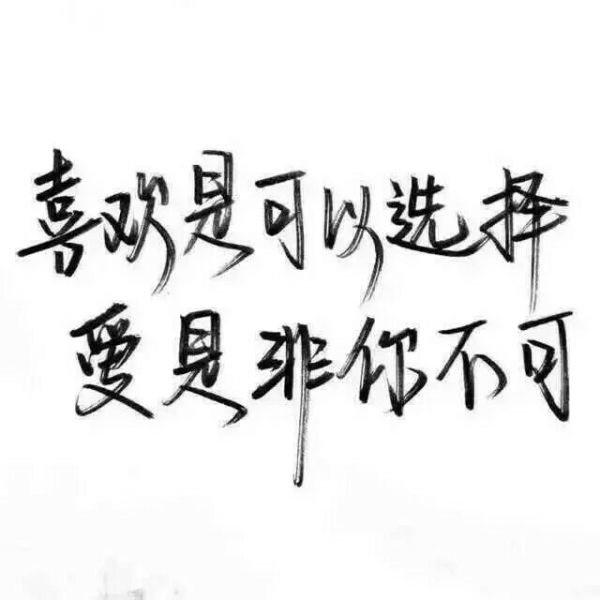 喜欢是可以选择
爱是非你不可